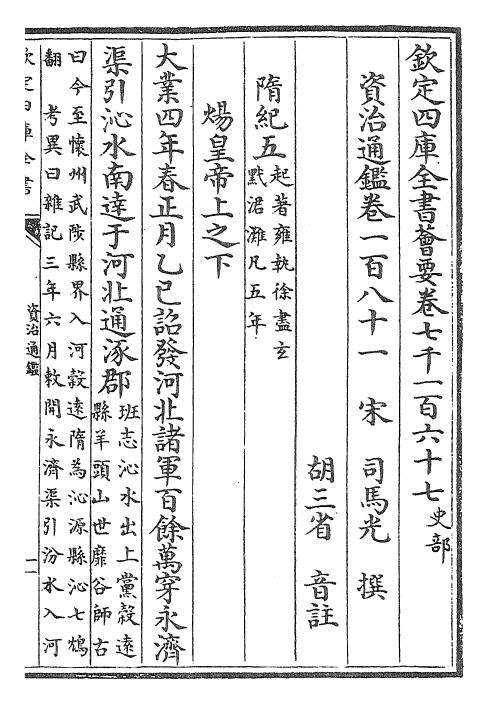 欽定四庫全書薈要卷七千一百六十七 史部
資治通鑑卷一百八十一 宋 司馬光 撰
胡三省 音註
隋紀五 起著雍執徐盡玄
黓涒灘凡五年
煬皇帝上之下
大業四年春正月乙巳詔發河北諸軍百餘萬穿永濟
渠引沁水南達于河北通涿郡 班志沁水出上黨穀遠
縣羊頭山世靡谷師古
曰今至懷州武陟縣界入河穀遠隋為沁源縣沁七鴆
翻 考異曰雜記三年六月敕開永濟渠引汾水入河
欽定四庫全書
資治通鑑
一